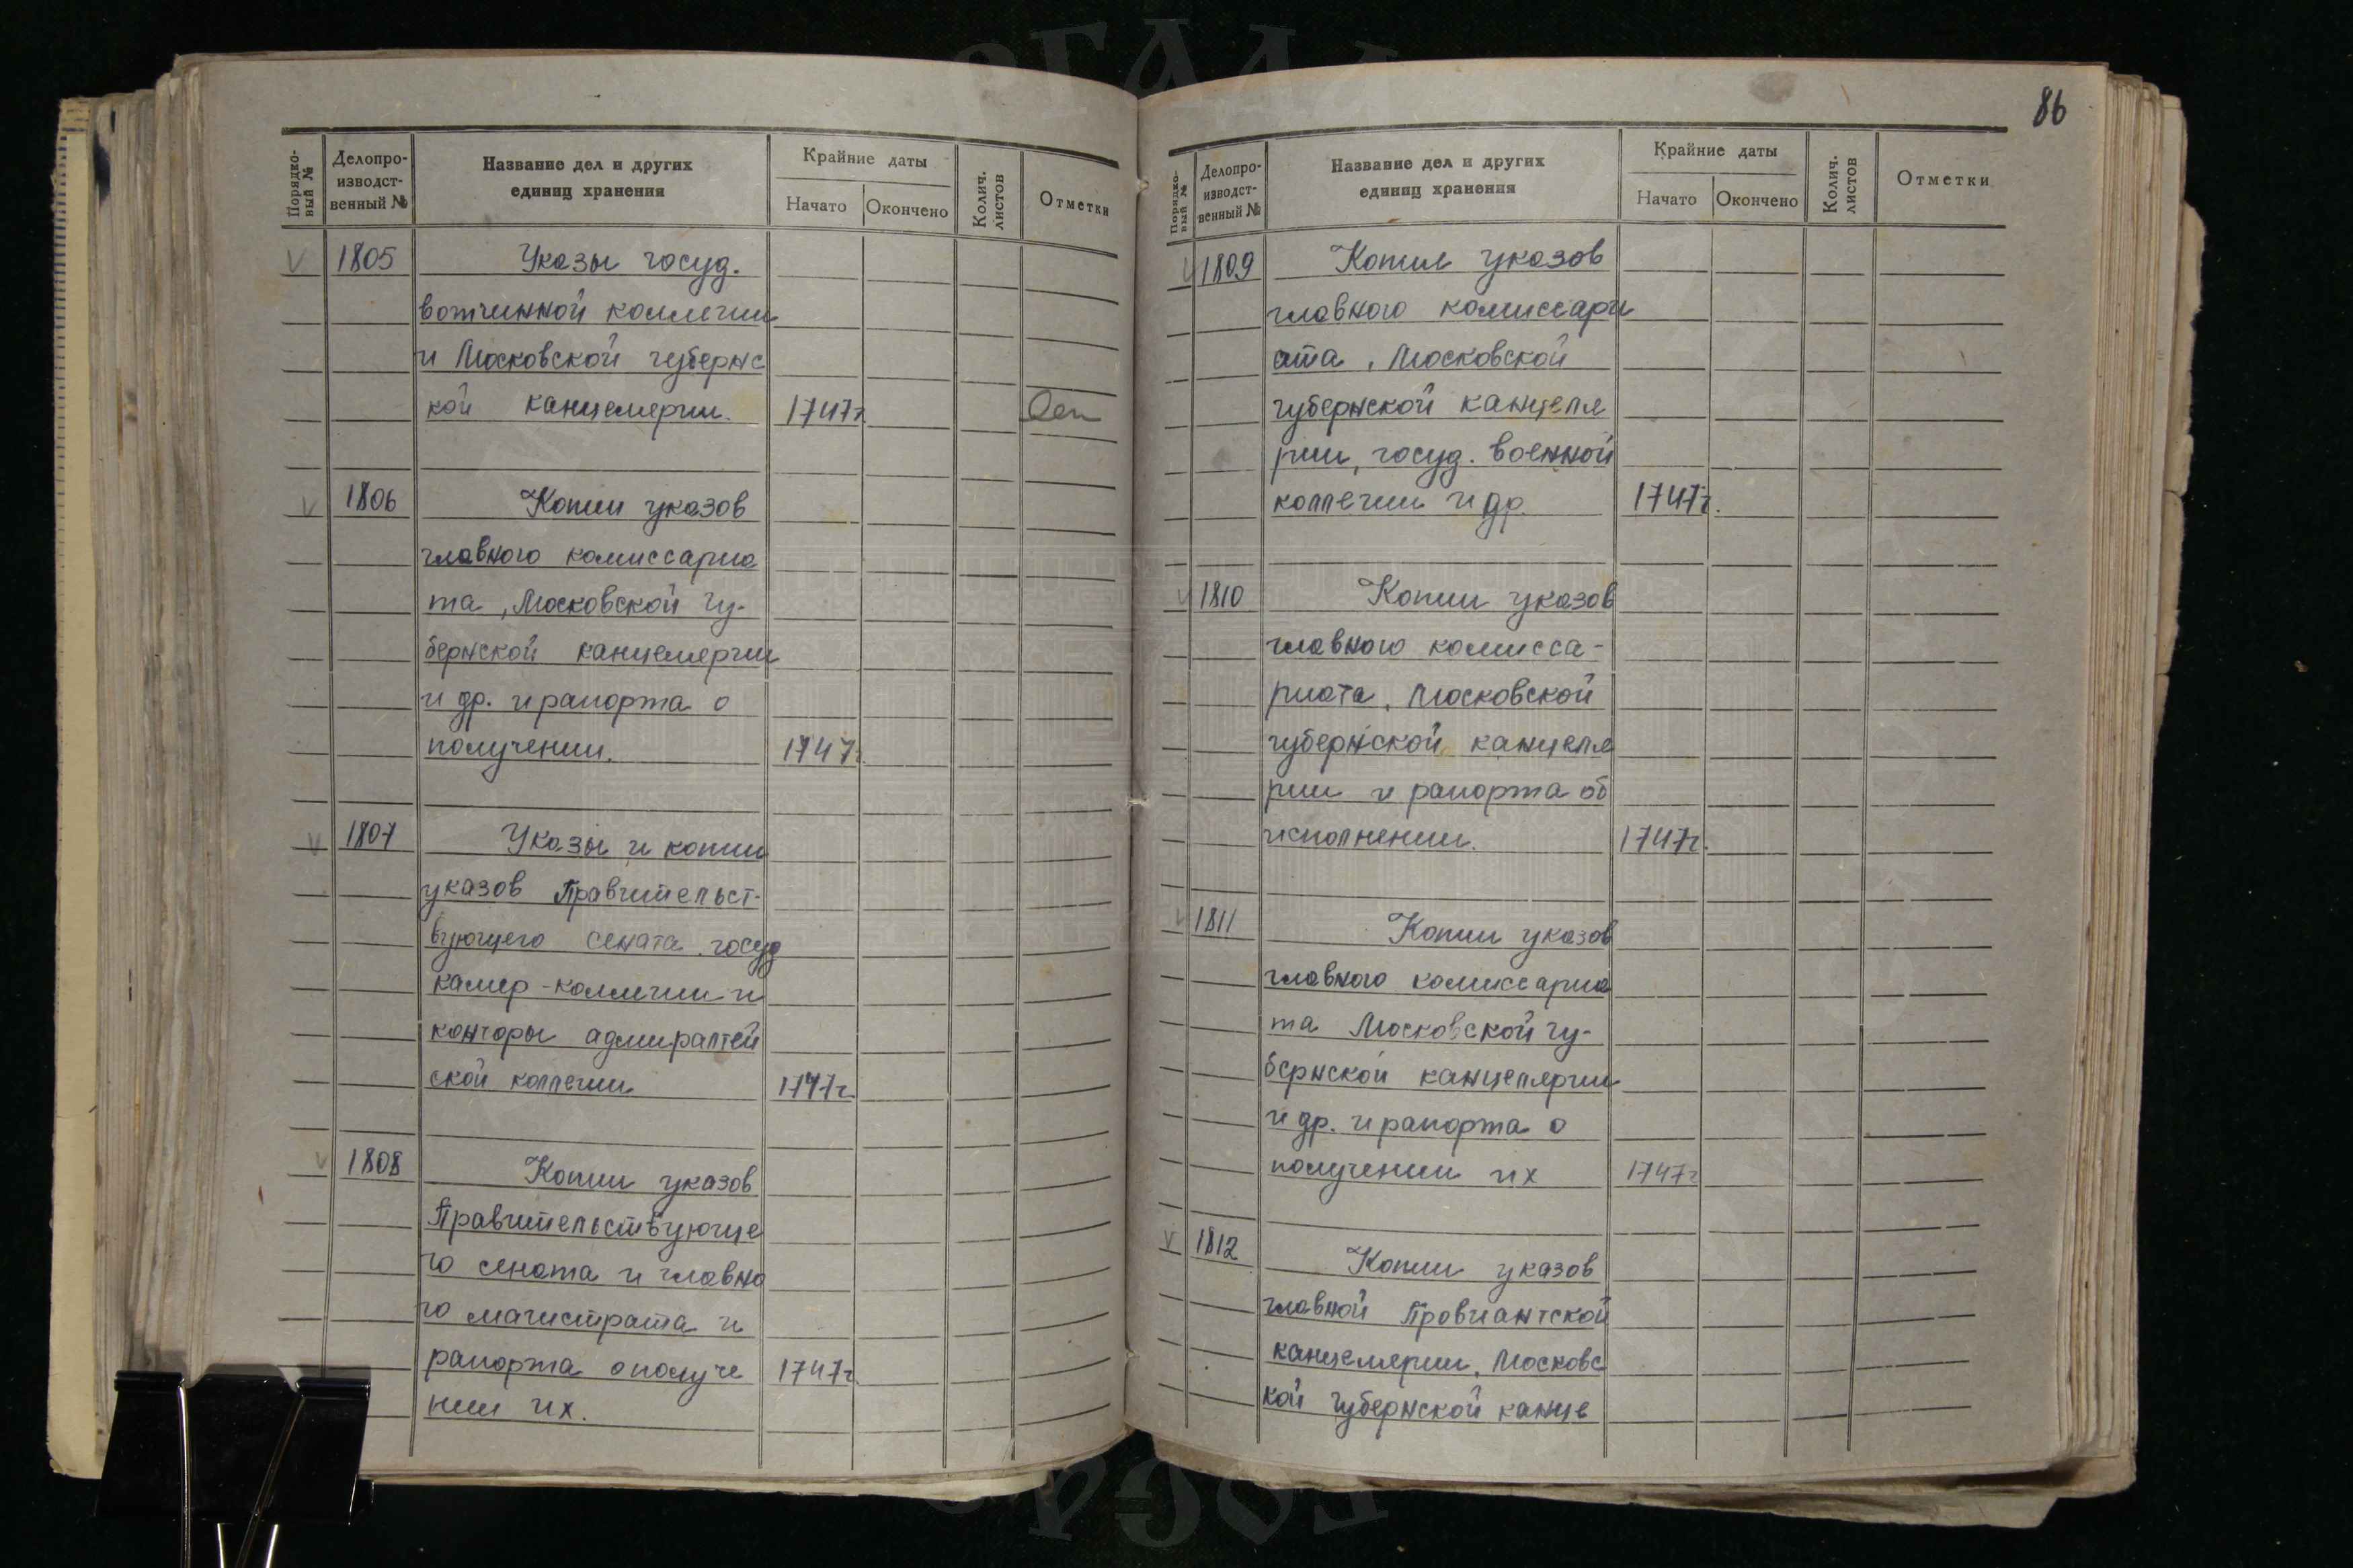 86
Порядко-
вый №
Делопро-
изводст-
венный №
Название дел и других
единиц хранения
Крайние даты
Начато
Окончено
Колич.
листов
Отметки
V 1805 Указы госуд.
вотчинной коллегии
и Московской губернс
кой канцелярии. 1747г.
V 1806 Копии указов
главного комиссариа
та, Московской гу-
бернской канцелярии
и др. и рапорта о
получении. 1747г.
V 1807 Указы и копии
указов Правительст-
вующего сената госуд
камер-коллегии и
конторы адмиралтей
ской коллегии 1747г.
V 1808 Копии указов
Правительствующе
го сената и главно
го магистрата и
рапорта о получе 1747г.
нии их.
Порядко-
вый №
Делопро-
изводст-
венный №
Название дел и других
единиц хранения
Крайние даты
Начато
Окончено
Колич.
листов
Отметки
V 1809 Копии указов
главного комиссари
ата, Московской
губернской канцеля
рии, госуд. военной
коллегии и др. 1747г.
V 1810 Копии указов
главного комисса-
риата, Московской
губернской канцеля
рии и рапорта об
исполнении. 1747г.
V 1811 Копии указов
главного комиссариа
та Московской гу-
бернской канцелярии
и др. и рапорта о
получении их 1747г
V 1812 Копии указов
главной Провиантской
канцелярии, Московс
кой губернской канце